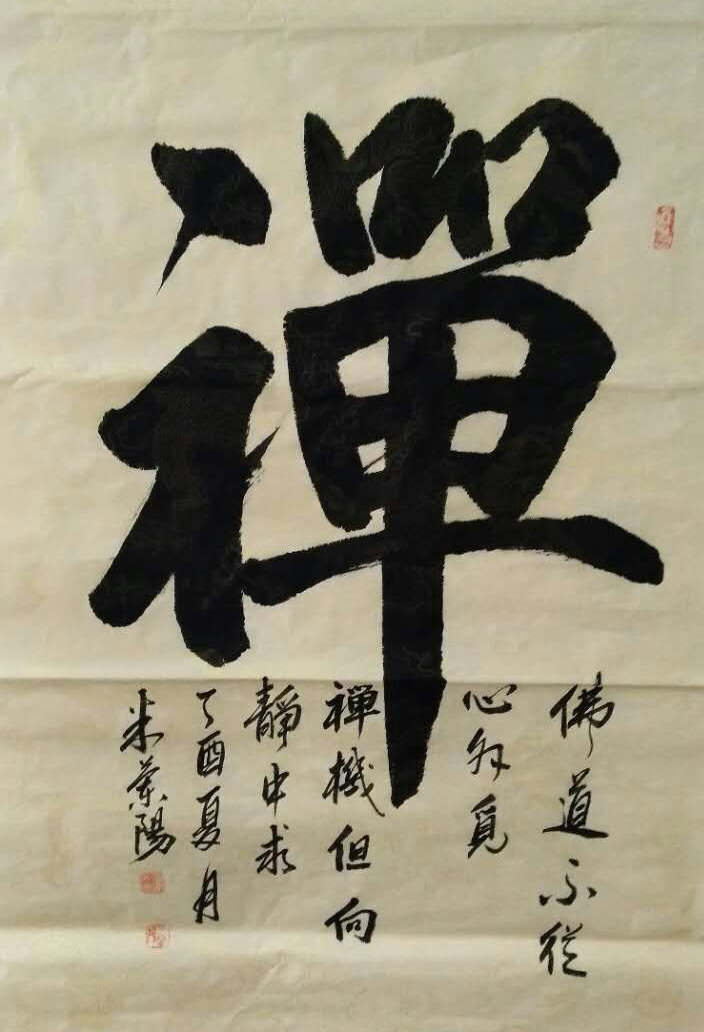 禪
佛道不從
心外覓
禪機但向
靜中求
丁酉夏月
米景陽